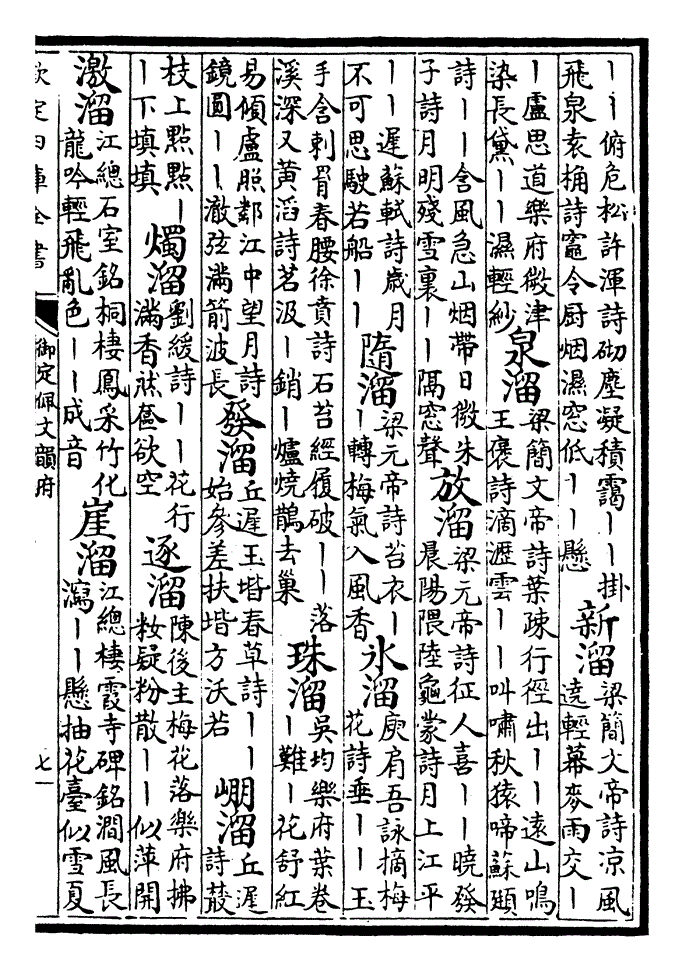 丨丨俯危松許渾詩砌塵凝積靄丨丨掛
飛泉袁桷詩竈令厨烟濕窓低丨丨懸
新溜
梁簡文帝詩凉風
遶輕幕麥雨交丨
丨盧思道樂府微津
染長黛丨丨濕輕紗
泉溜
梁簡文帝詩葉疎行徑出丨丨遠山鳴
王褒詩滴瀝雲丨丨叫嘯秋猿啼蘇頲
詩丨丨含風急山烟帶日微朱
子詩月明殘雪裏丨丨隔窓聲
放溜
梁元帝詩征人喜丨丨曉發
晨陽隈陸龜蒙詩月上江平
丨丨遲蘇軾詩歲月
不可思駛若船丨丨
隨溜
梁元帝詩苔衣丨
丨轉梅氣入風香
氷溜
庾肩吾詠摘梅
花詩垂丨丨玉
手含刺胃春腰徐賁詩石苔經履破丨丨落
溪深又黄滔詩茗汲丨銷丨爐燒鵲去巢
珠溜
吳均樂府葉卷
丨難丨花舒紅
易傾盧照鄰江中望月詩
鏡圓丨丨澈弦滿箭波長
發溜
丘遲玉堦春草詩丨丨
始參差扶堦方沃若
崩溜
丘遲
詩菆
枝上點點丨
丨下填填
燭溜
劉緩詩丨丨花行
滿香牀奩欲空
逐溜
陳後主梅花落樂府拂
妝疑粉散丨丨似萍開
激溜
江總石室銘桐棲鳳采竹化
龍吟輕飛亂色丨丨成音
崖溜
江總棲霞寺碑銘澗風長
瀉丨丨懸抽花臺似雪夏
欽定四庫全書
御定佩文韻府
七